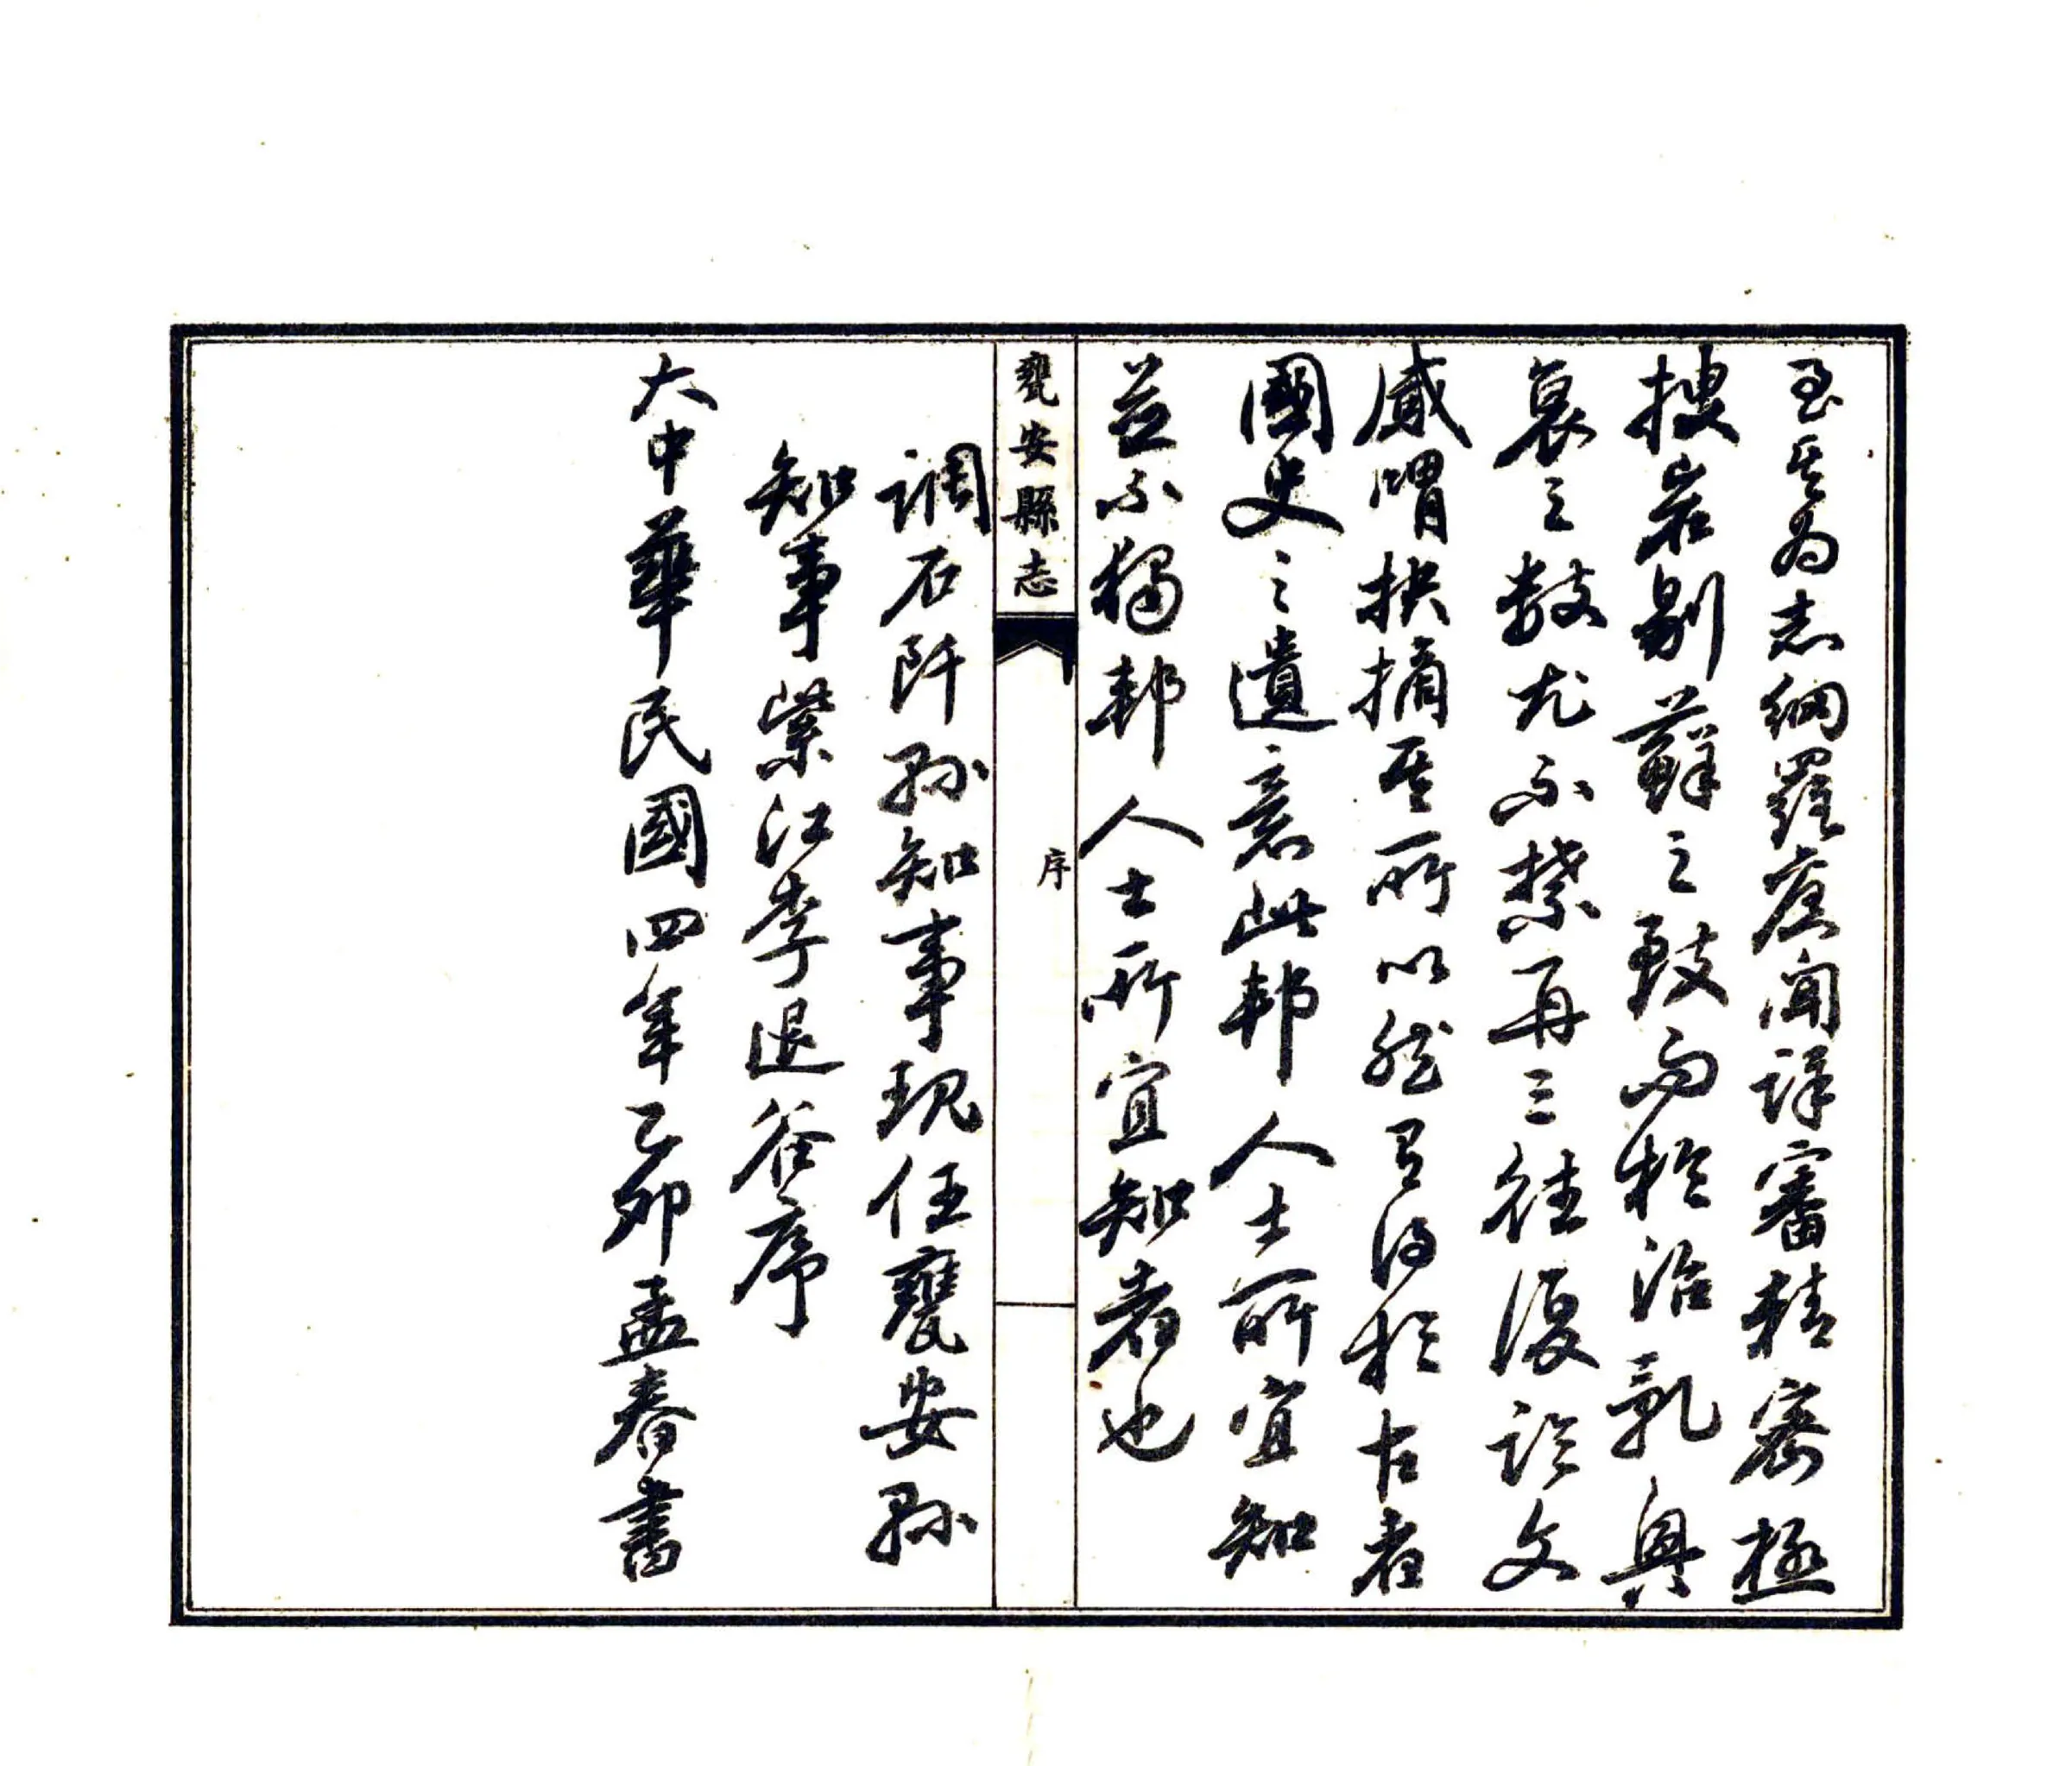 至其為志網羅舊聞詳審精密極
搜岩剔蘚之致而於治亂興
衰之數尤不禁再三往復論文
感喟抉摘其所以然有得於古者
國史之遺意此邦人士所宜知
並不獨邦人士所宜知者也
甕安縣志
序
調石阡縣知事現任甕安縣
知事紫江李退谷序
大中華民國四年乙卯孟春書